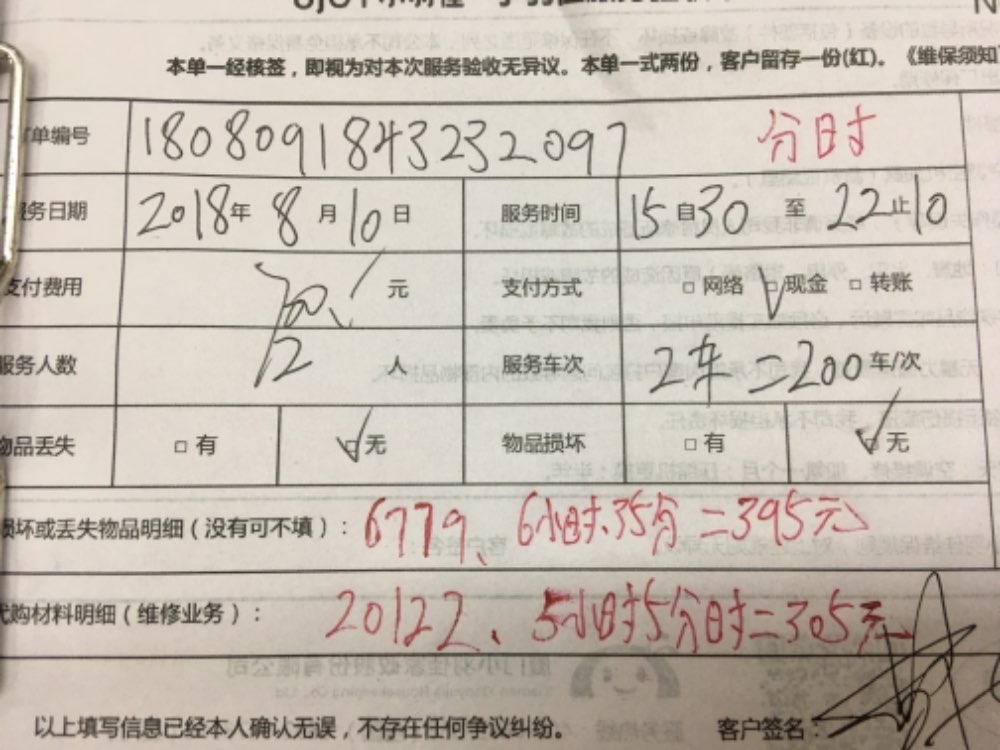 本单一经核签，即视为对本次服务验收无异议。本单一式两份，客户留存一份(红)。《维保须知
单编号 1808091843232097 分时
服务日期 2018年 8月10日 服务时间 15自30 至 22止10
支付费用 700. 元 支付方式 □网络 □现金 □转账
服务人数 12 人 服务车次 2车=200 车/次
物品丢失 □有 □无 物品损坏 □有 □无
损坏或丢失物品明细（没有可不填）：6779、6小时35分=395元
代购材料明细（维修业务）：20122、5小时5分时=305元
以上填写信息已经本人确认无误，不存在任何争议纠纷。 客户签名：